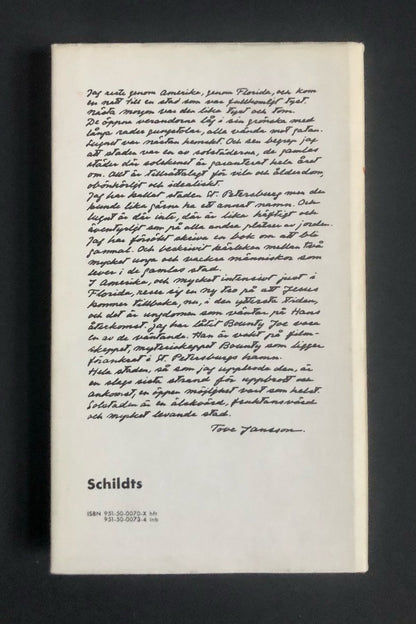 Jag reste genom Amerika, genom Florida, och kom
en natt till en stad som var fullkomligt tyst.
Nästa morgon var den lika tyst och tom.
De öppna verandorna låg i sin grönska med
långa rader gungstolar, alla vända mot gatan.
Lugnet var nästan hemskt. Och sen begrep jag
att staden var en av solstäderna, de gamlas
städer där solskenet är garanterat hela året
om. Allt är tillrättalagt för vila och ålderdom,
obönhörligt och idealiskt.
Jag har kallat staden St. Petersburg men den
kunde lika gärna ha ett annat namn. Och
lugnt är där inte, där är lika häftigt och
äventyrligt som på alla andra platser av jorden.
Jag har försökt skriva en bok om att bli
gammal. Och beskrivit kärleken mellan två
mycket unga och vackra människor som
lever i de gamlas stad.
I Amerika, och mycket intensivt just i
Florida, reser sig en ny tro på att Jesus
kommer tillbaka, nu, i den yttersta tiden,
och det är ungdomen som väntar på Hans
återkomst. Jag har låtit Bounty Joe vara
en av de väntande. Han är vakt på film-
skeppet, mysterieskeppet Bounty som ligger
förankrat i St. Petersburgs hamn.
Hela staden, så som jag upplevde den, är
en slags sista strand för uppbrott och
ankomst, en öppen möjlighet vart som helst.
Solstaden är en älskvärd, fruktansvärd
och mycket levande stad.
Tove Jansson.
Schildts
ISBN 951-50-0070-X hft
951-50-0073-4 inb